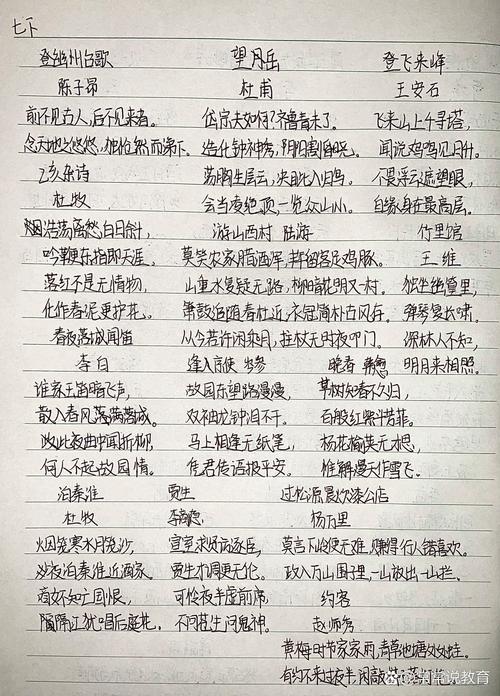 七下
登幽州台歌
陈子昂
前不见古人,后不见来者。
念天地之悠悠,独怆然而涕下。
己亥杂诗
杜牧
浩荡离愁白日斜,
吟鞭东指即天涯。
落红不是无情物,
化作春泥更护花。
春夜洛城闻笛
李白
谁家玉笛暗飞声,
散入春风满洛城。
此夜曲中闻折柳,
何人不起故园情。
泊秦淮
杜牧
烟笼寒水月笼沙,
夜泊秦淮近酒家。
商女不知亡国恨,
隔江犹唱后庭花。
望岳
杜甫
岱宗夫如何?齐鲁青未了。
造化钟神秀,阴阳割昏晓。
荡胸生层云,决眦入归鸟。
会当凌绝顶,一览众山小。
游山西村 陆游
莫笑农家腊酒浑,丰年留客足鸡豚。
山重水复疑无路,柳暗花明又一村。
箫鼓追随春社近,衣冠简朴古风存。
从今若许闲乘月,拄杖无时夜叩门。
逢入京使 岑参
故园东望路漫漫,
双袖龙钟泪不干。
马上相逢无纸笔,
凭君传语报平安。
贾生
李商隐
宣室求贤访逐臣,
贾生才调更无伦。
可怜夜半虚前席,
不问苍生问鬼神。
登飞来峰
王安石
飞来山上千寻塔,
闻说鸡鸣见日升。
不畏浮云遮望眼,
自缘身在最高层。
竹里馆
王维
独坐幽篁里,
弹琴复长啸。
深林人不知,
明月来相照。
晚春 韩愈
草树知春不久归,
百般红紫斗芳菲。
杨花榆荚无才思,
惟解漫天作雪飞。
过松源晨炊漆公店
杨万里
莫言下岭便无难,赚得行人错喜欢。
政入万山围子里,一山放出一山拦。
约客
赵师秀
黄梅时节家家雨,青草池塘处处蛙。
有约不来过夜半,闲敲棋子落灯花。